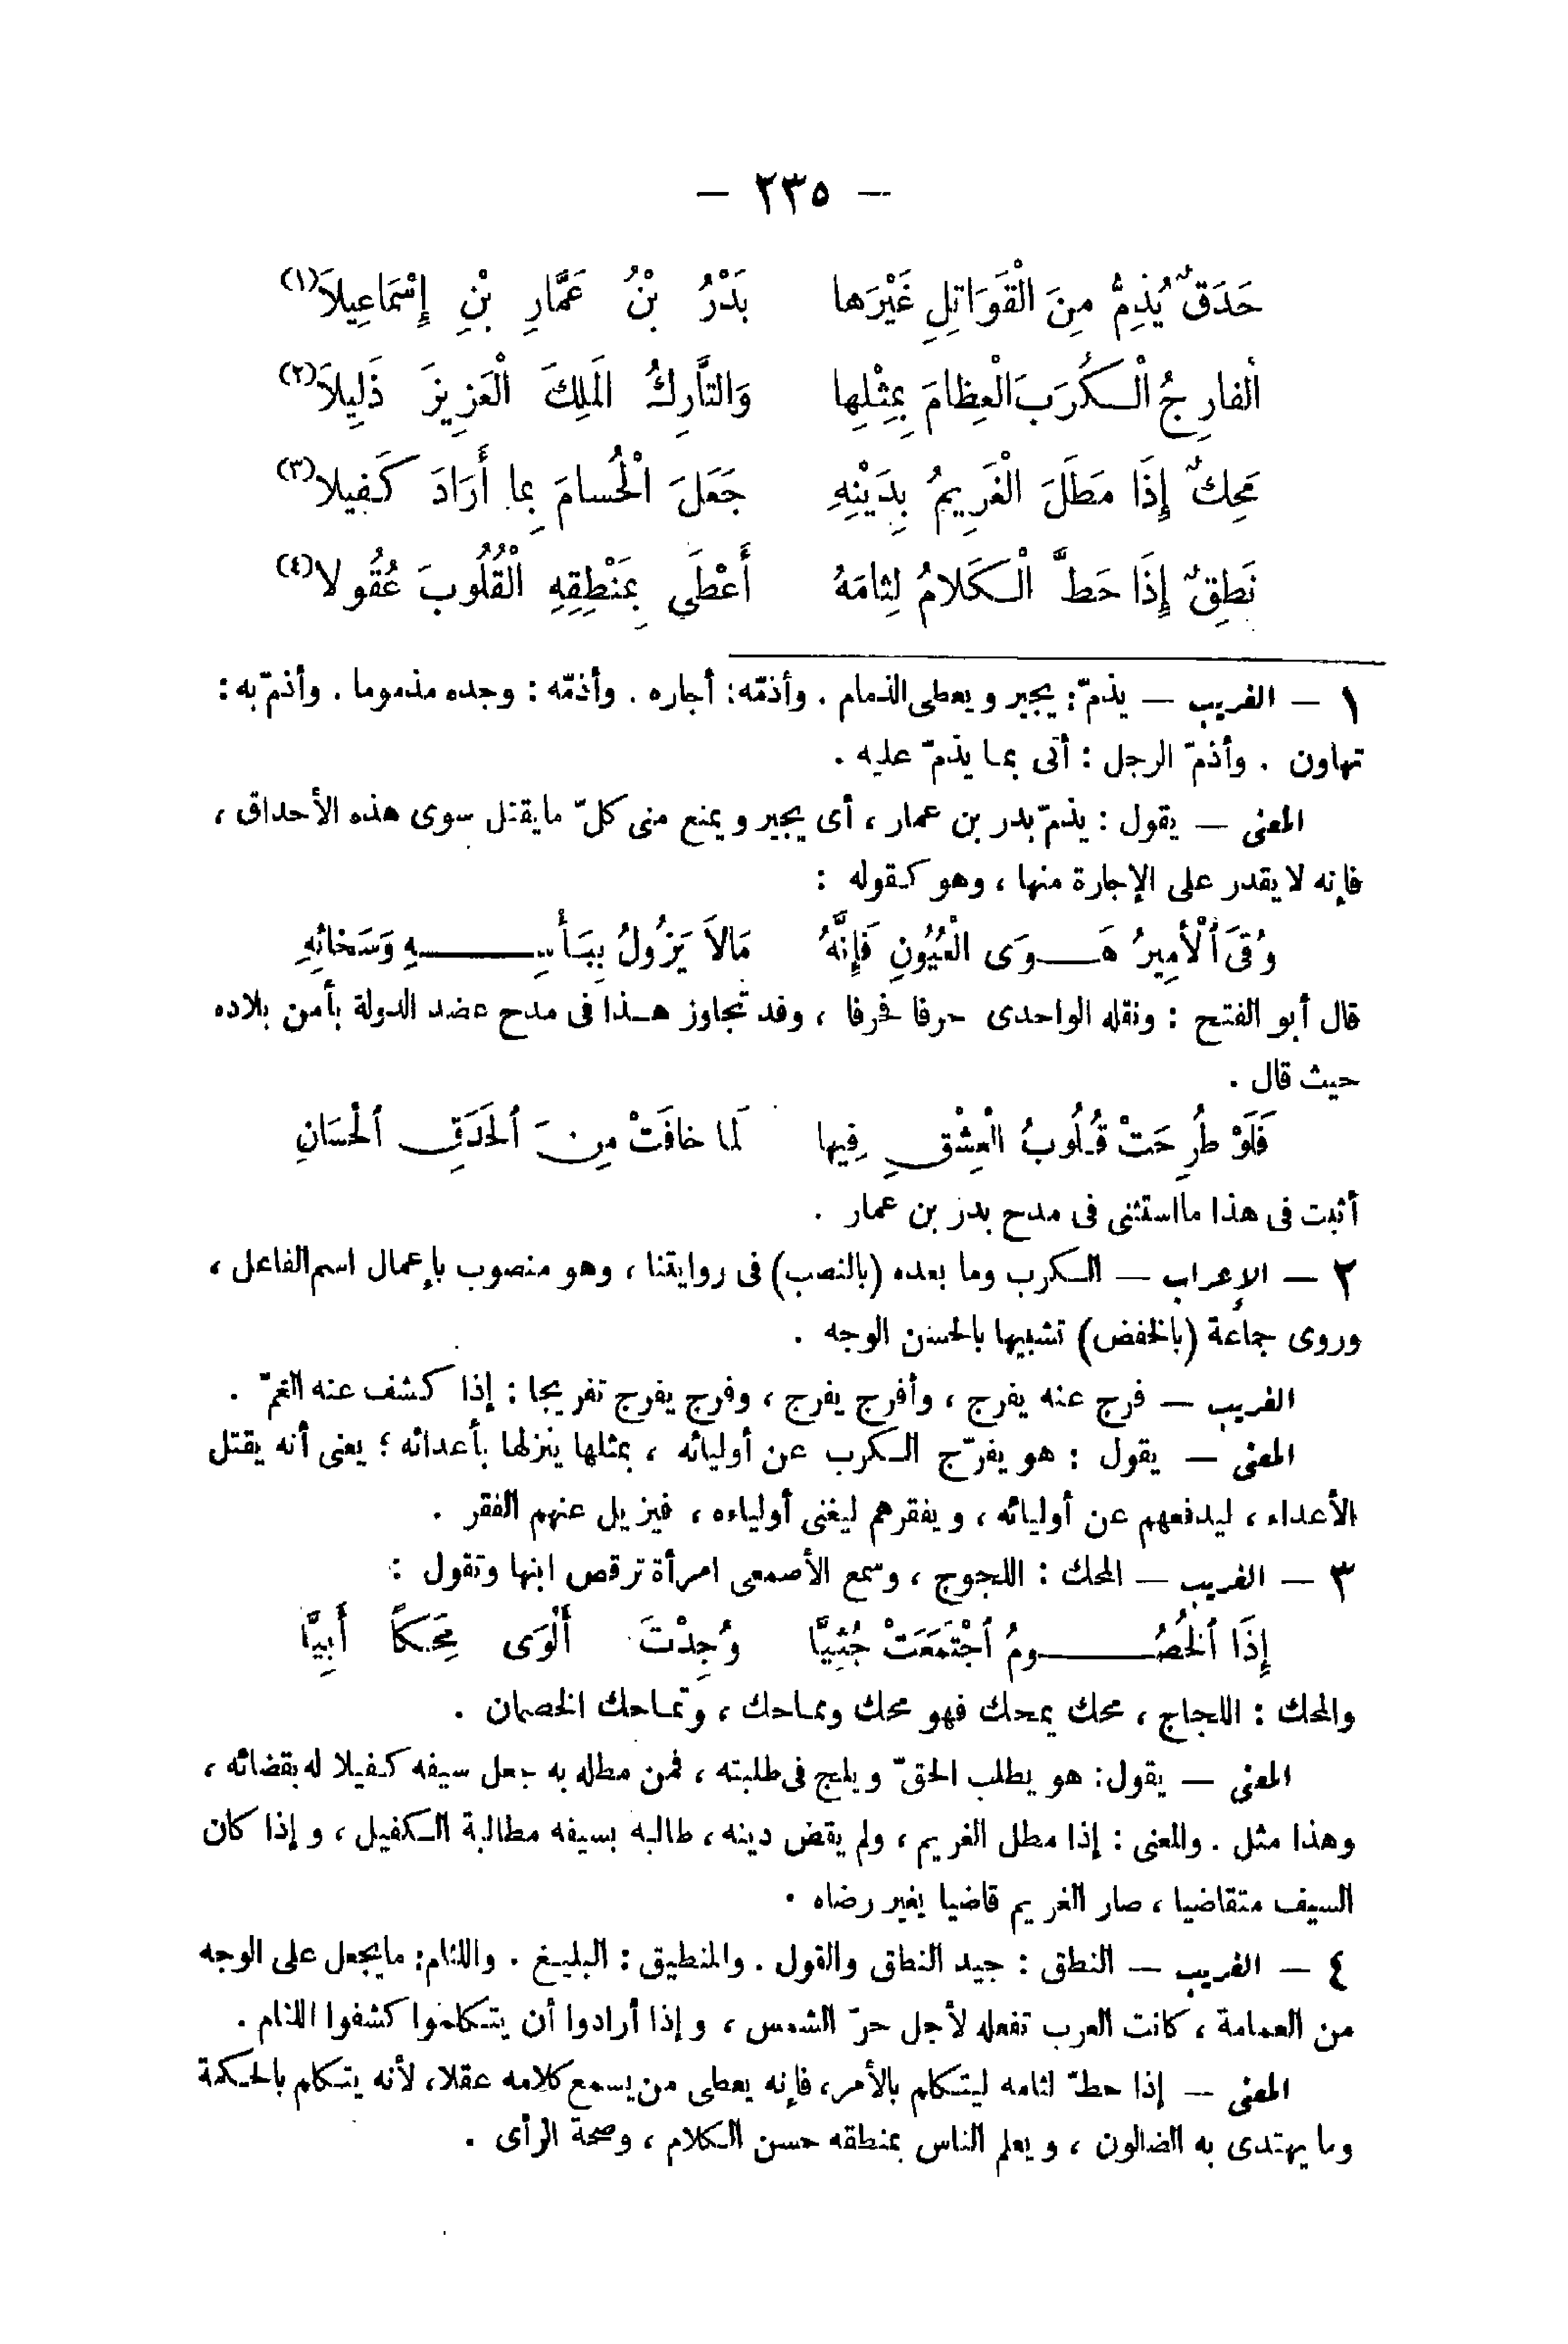 — ٢٣٥ —
حَدَقٌ يُذِمُّ مِنَ الْقَوَاتِلِ غَيْرَها بَدْرُ بْنُ عَمَّارِ بْنِ إِسْمَاعِيلاَ (١)
ألفارِجُ الْكُرَبَ الْعِظامَ بِمِثْلِها وَالتَّارِكُ الْمَلِكَ الْعَزِيزَ ذَلِيلاَ (٢)
مَحِكٌ إِذَا مَطَلَ الْغَرِيمُ بِدَيْنِهِ جَعَلَ الْحُسامَ بِما أَرَادَ كَفِيلا (٣)
نَطِقٌ إِذَا حَطَّ الْكَلامُ لِثامَهُ أَعْطَى بِمَنْطِقِهِ الْقُلُوبَ عُقُولا (٤)
١ — الغريب — يذمّ: يجير ويعطى الذمام . وأذمّه: أجاره . وأذمّه : وجده مذموما . وأذمّ به :
تهاون . وأذمّ الرجل : أتى بما يذمّ عليه .
المعنى — يقول : يذمّ بدر بن عمار ، أى يجير ويمنع منى كلّ مايقتل سوى هذه الأحداق ،
فإنه لا يقدر على الإجارة منها ، وهو كقوله :
وُقِىَ ٱلْأَمِيرُ هَوَى الْعُيُونِ فَإِنَّهُ مَالاَ يَزُولُ بِبَأْسِهِ وَسَخائِهِ
قال أبو الفتح : ونقله الواحدى حرفا فحرفا ، وقد تجاوز هذا فى مدح عضد الدولة بأمن بلاده
حيث قال .
فَلَوْ طُرِحَتْ قُلُوبُ الْعِشْقِ فِيها لَما خافَتْ مِنَ ٱلْحَدَقِ ٱلْحِسَانِ
أثبت فى هذا مااستثنى فى مدح بدر بن عمار .
٢ — الإعراب — الكرب وما بعده (بالنصب) فى روايتنا ، وهو منصوب بإعمال اسم الفاعل ،
وروى جماعة (بالخفض) تشبيها بالحسن الوجه .
الغريب — فرج عنه يفرج ، وأفرج يفرج ، وفرج يفرج تفريجا : إذا كشف عنه الغمّ .
المعنى — يقول : هو يفرّج الكرب عن أوليائه ، بمثلها ينزلها بأعدائه ؛ يعنى أنه يقتل
الأعداء ، ليدفعهم عن أوليائه ، ويفقرهم ليغنى أولياءه ، فيزيل عنهم الفقر .
٣ — الغريب — المحك : اللجوج ، وسمع الأصمعى امرأة ترقص ابنها وتقول :
إِذَا ٱلْخُصُومُ ٱجْتَمَعَتْ جُثِيَّا وُجِدْتَ أَلْوَى مَحِكًا أَبِيَّا
والمحك : اللجاج ، محك يمحك فهو محك ومماحك ، وتماحك الخصمان .
المعنى — يقول: هو يطلب الحقّ ويلج فى طلبته ، فمن مطله به جعل سيفه كفيلا له بقضائه ،
وهذا مثل . والمعنى : إذا مطل الغريم ، ولم يقض دينه ، طالبه بسيفه مطالبة الكفيل ، وإذا كان
السيف متقاضيا ، صار الغريم قاضيا بغير رضاه .
٤ — الغريب — النطق : جيد النطق والقول . والمنطيق : البليغ . واللثام: مايجعل على الوجه
من العمامة ، كانت العرب تفعله لأجل حرّ الشمس ، وإذا أرادوا أن يتكلموا كشفوا اللثام .
المعنى — إذا حطّ لثامه ليتكلم بالأمر، فإنه يعطى من يسمع كلامه عقلا، لأنه يتكلم بالحكمة
وما يهتدى به الضالون ، ويعلم الناس بمنطقه حسن الكلام ، وصحة الرأى .